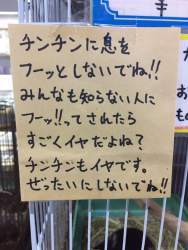 チンチンに息を
フーッとしないでね!!
みんなも知らない人に
フーッ!!ってされたら
すごくイヤだよね?
チンチンもイヤです。
ぜったいにしないでね!!